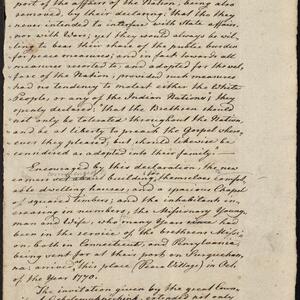 part of the affairs of the Nation, being also
removed by their declaring: That tho' they
never intended to interfere with State affairs,
nor with Wars; yet they would always be wil-
ling to bear their share of the public burden
for peace measures; and in fact towards all
measures resorted to and adopted for the wel-
fare of the Nation; provided such measures
had no tendency to molest either the White
Peoples, or any of the Indian Nations; they
freely declared, That the Brethren should
not only be tolerated throughout the Nation,
and be at liberty to preach the Gospel wher-
ever they pleased, but should likewise be
considered as adopted into their family.
Encouraged by this declaration, the new
comers began building themselves comfort-
able dwelling houses, and a spacious Chapel
of squared timbers; and the inhabitants in-
creasing in numbers, the Missionary Young-
man and Wife, who many Years since had
been in the service of the brethrens Missi-
on, both in Connecticut, and Pensylvania;
being sent for at their post on Susquehan-
na, arrived at this place in Oct.
of the Year 1770.
The invitation given by the great town,
extended not only